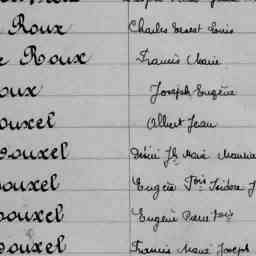 Roux Charles Ernest Louis
Roux Francis Marie
oux Joseph Eugène
ouxel Albert Jean
ouxel Désiré Jh Marie Maurice
ouxel Eugène Fois Isidore J
ouxel Eugène Pierre Fois
ouxel Francis Marie Joseph